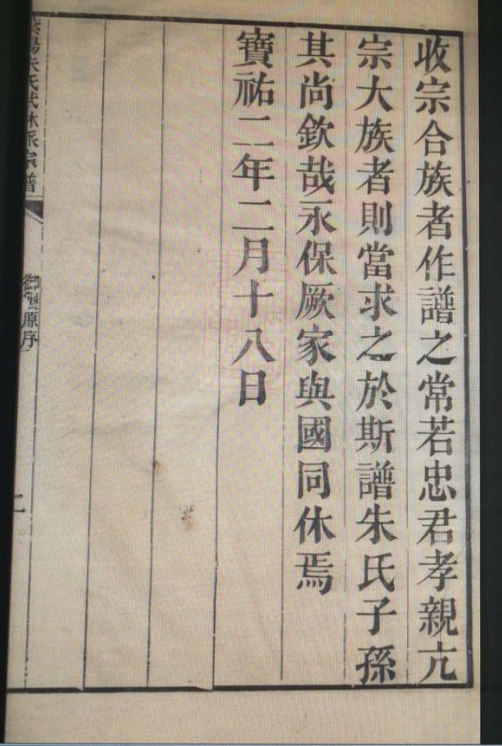 收宗合族者作譜之常若忠君孝親亢
宗大族者則當求之於斯譜朱氏子孫
其尚欽哉永保厥家與國同休焉
寶祐二年二月十八日
紫陽朱氏武林派宗譜
御製原序